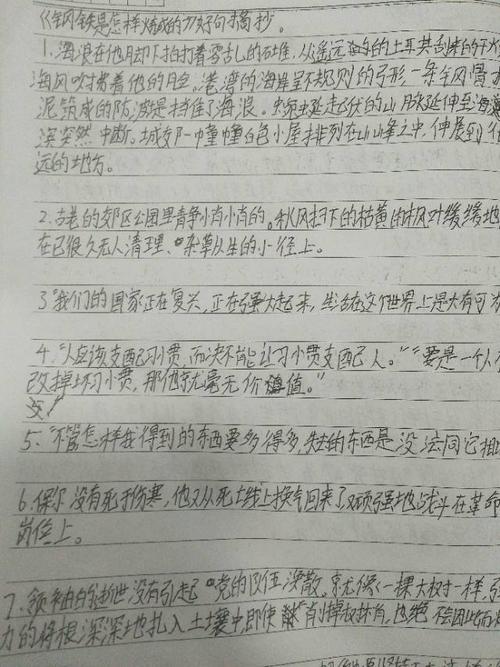 《钢铁是怎样炼成的》好句摘抄。
1.海浪在他脚下拍打着零乱的石堆,从遥远的土耳其刮来的干
海风吹拂着他的脸。港湾的海岸呈不规则的弓形,一条钢骨
泥筑成的防波堤挡住了海浪。蜿蜒起伏的山脉延伸至海
滨突然中断。城郊一幢幢白色小屋排列在山峰之中,伸展到
远的地方。
2.古老的郊区公园里静悄悄的。秋风扫下的枯黄的枫叶缓缓地
在已很久无人清理、杂草丛生的小径上。
3"我们的国家正在复兴,正在强大起来,生活在这个世界上是大有可为
4."人应该支配习惯,而决不能让习惯支配人。""要是一个人不
改掉坏习惯,那他就毫无价值。"
5."不管怎样我得到的东西要多得多,失去的东西是没法同它相
6.保尔没有死于伤寒,他又从死亡线上换气回来了,又顽强地战斗在革命
岗位上。
7.领袖的逝世没有引起党的队伍涣散。就像一棵大树一样,强
力的将根深深地扎入土壤中,即使削掉树梢,也绝不会因此而